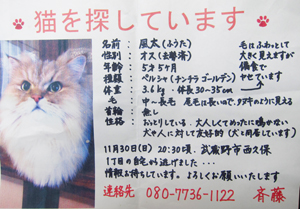 猫を探しています
名前：風太（ふうた）
性別：オス（去勢済）
年齢：5才5ヶ月
種類：ペルシャ（チンチラゴールデン）
体重：3.6kg・体長30～35cm
毛：中～長毛 尾毛は長いので、タヌキのように見える
首輪：無し
性格：おとりしている。大人しくてめったに鳴かない
犬や人に対して友好的（犬と同居しています）
毛はふわっとして
大きく見えますが
偏食で
ヤセています
11月30日（日）20:30頃、武蔵野市西久保
1丁目の自宅から逃げました…
情報お待ちしています。よろしくお願いいたします
連絡先 080-7736-1122 斉藤